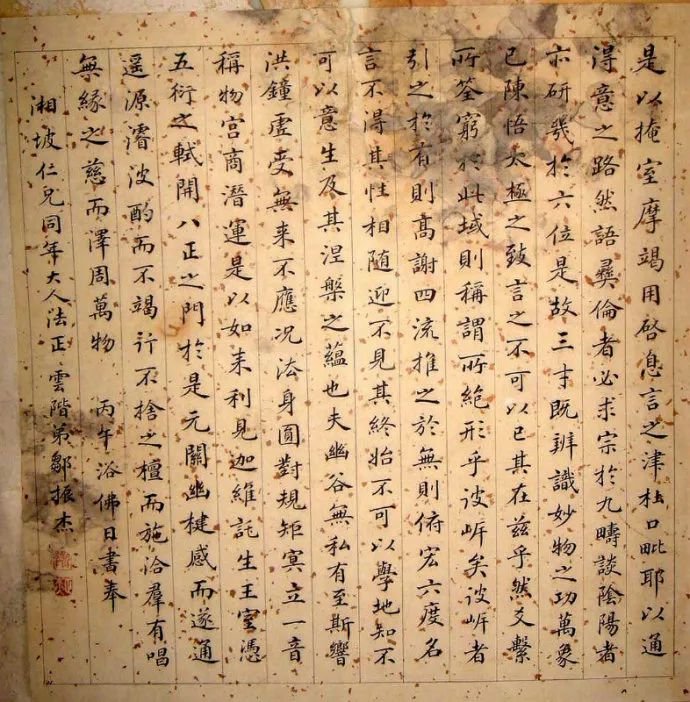 是以掩室摩竭用啓息言之津杜口毗耶以通
得意之路然語彝倫者必求宗於九疇談陰陽者
亦研幾於六位是故三才既辨識妙物之功萬象
已陳悟太極之致言之不可以已其在茲乎然爻繫
所筌窮於此域則稱謂所絕形乎彼岸矣彼岸者
引之於有則高謝四流推之於無則俯宏六度名
言不得其性相随迎不見其終始不可以學地知不
可以意生及其涅槃之蘊也夫幽谷無私有至斯響
洪鐘虛受無来不應况法身圓對規矩冥立一音
稱物宮商潛運是以如来利見迦維託生王室憑
五衍之軾開八正之門於是元關幽楗感而遂通
遥源濬波酌而不竭行不捨之檀而施洽羣有唱
無緣之慈而澤周萬物　丙午浴佛日書奉
湘坡仁兄同年大人法正雲階弟鄒振杰